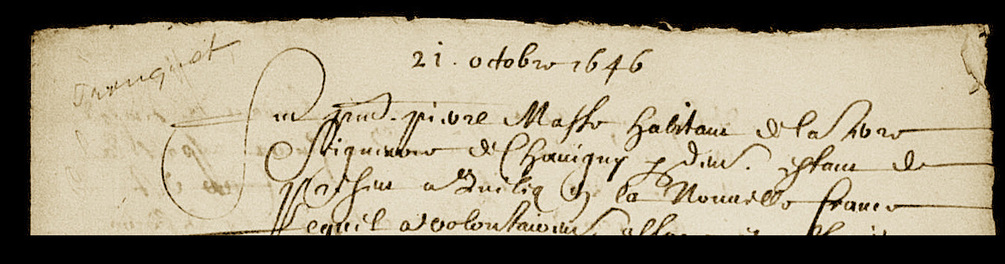 Tronquet
21. octobre 1646
Fut pnt. pierre Masse habitant de la terre
Seigneurie de Chauigny & demt. estant de
present a Quebeq en la Nouuelle france
lequel a volontairemt.